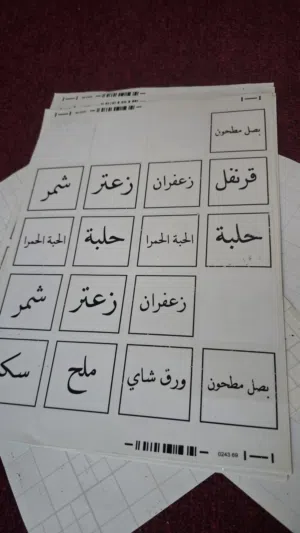 بصل مطحون
قرنفل زعفران زعتر شمر
حلبة الحبة الحمرا حلبة الحبة الحمرا
زعفران زعتر شمر
بصل مطحون ورق شاي ملح سكر
0243 69